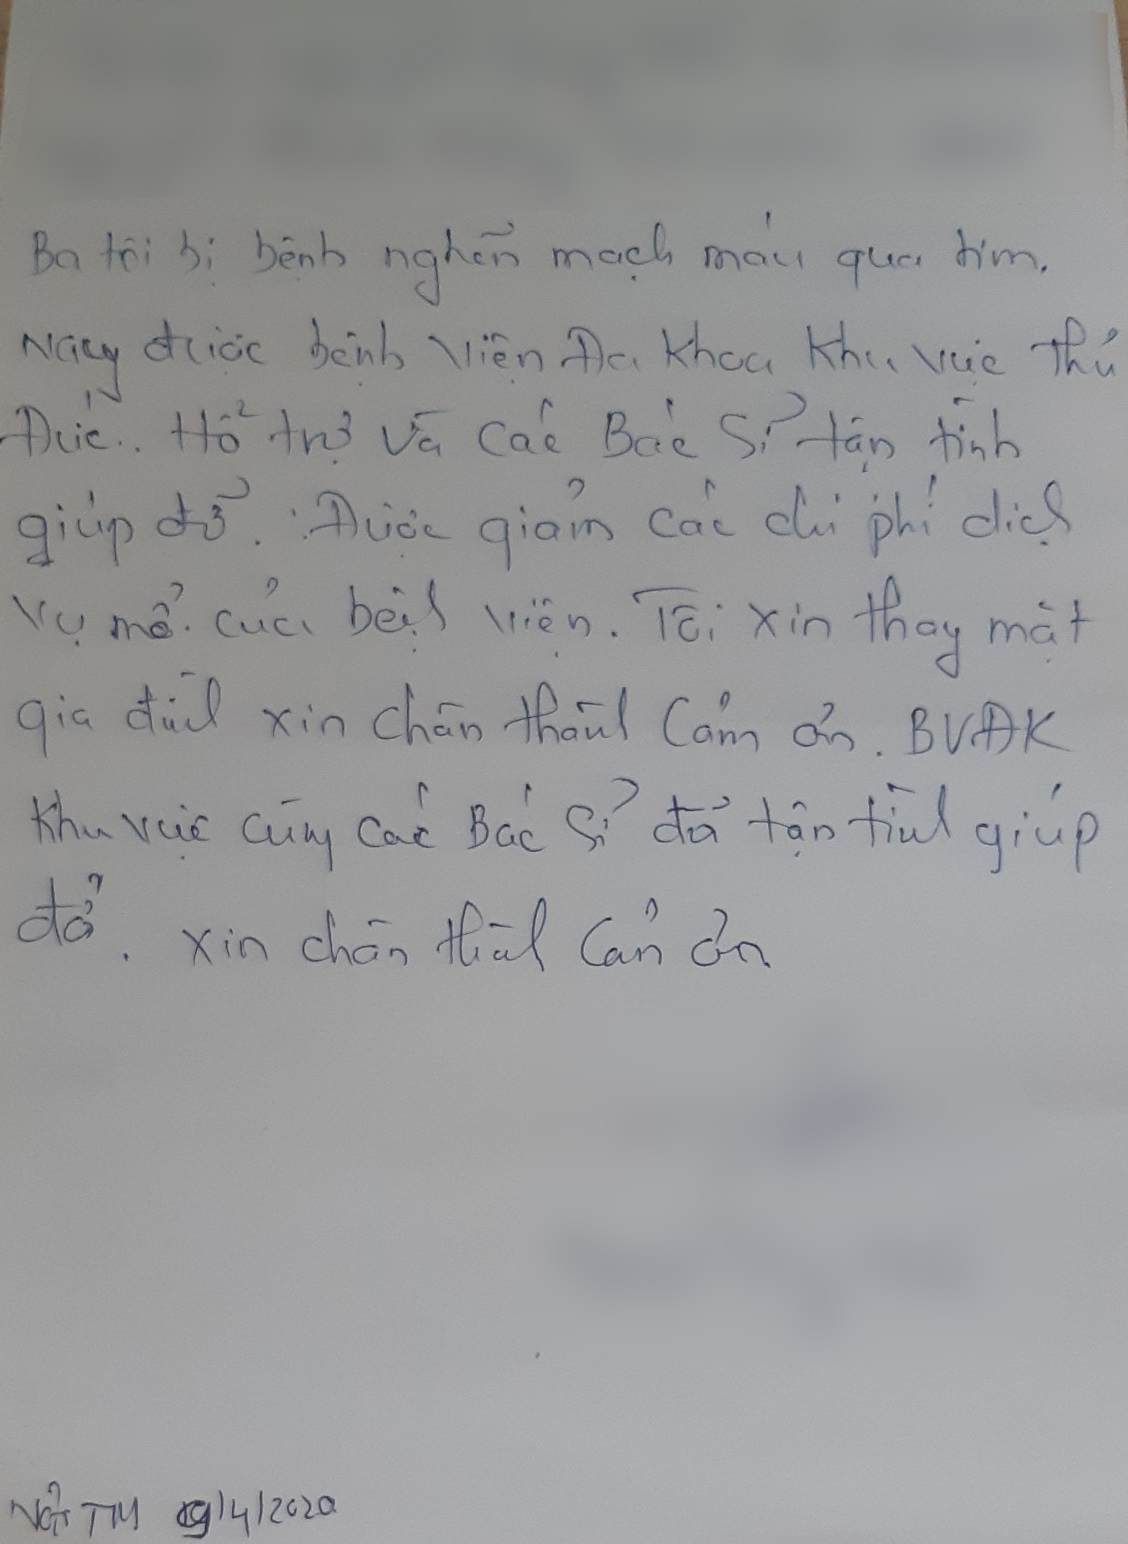 Ba tôi bị bệnh nghẽn mạch máu qua tim.
Nay được bệnh viện Đa Khoa Khu vực Thủ
Đức.. Hổ trợ và các Bác Sỉ tận tình
giúp đở. Được giảm các chi phí dịch
vụ mổ của bệnh viện. Tôi xin thay mặt
gia đình xin chân thành Cảm ơn. BVĐK
Khu vực cùng các Bác Sỉ đả tận tình giúp
đở. xin chân thành Cảm ơn
Nội TM 9/4/2020